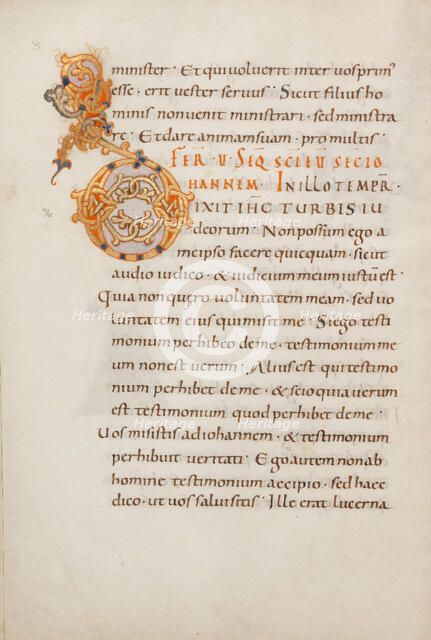 minister · Et qui voluerit inter vos prim'
esse · erit vester servus · Sicut filius ho
minis non venit ministrari · sed ministra
re · Et dare animam suam · pro multis ·
FER · V · SEQ SCI EU SEC IO
HANNEM · IN ILLO TEMPR ·
DIXIT IHC TURBIS IU
deorum · Non possum ego a
me ipso facere quicquam · sicut
audio iudico · & iudicium meum iustu est ·
Quia non quero voluntatem meam · sed vo
luntatem eius qui misit me · Si ego testi
monium perhibeo de me · testimonium me
um non est verum · Alius est qui testimo
nium perhibet de me · & scio quia verum
est testimonium quod perhibet de me ·
Vos misistis ad iohannem · & testimonium
perhibuit veritati · Ego autem non ab
homine testimonium accipio · sed haec
dico · ut vos salvi sitis · Ille erat lucerna
Heritage
Heritage
Heritage
Heritage
Heritage
Heritage
Heritage
Heritage
©